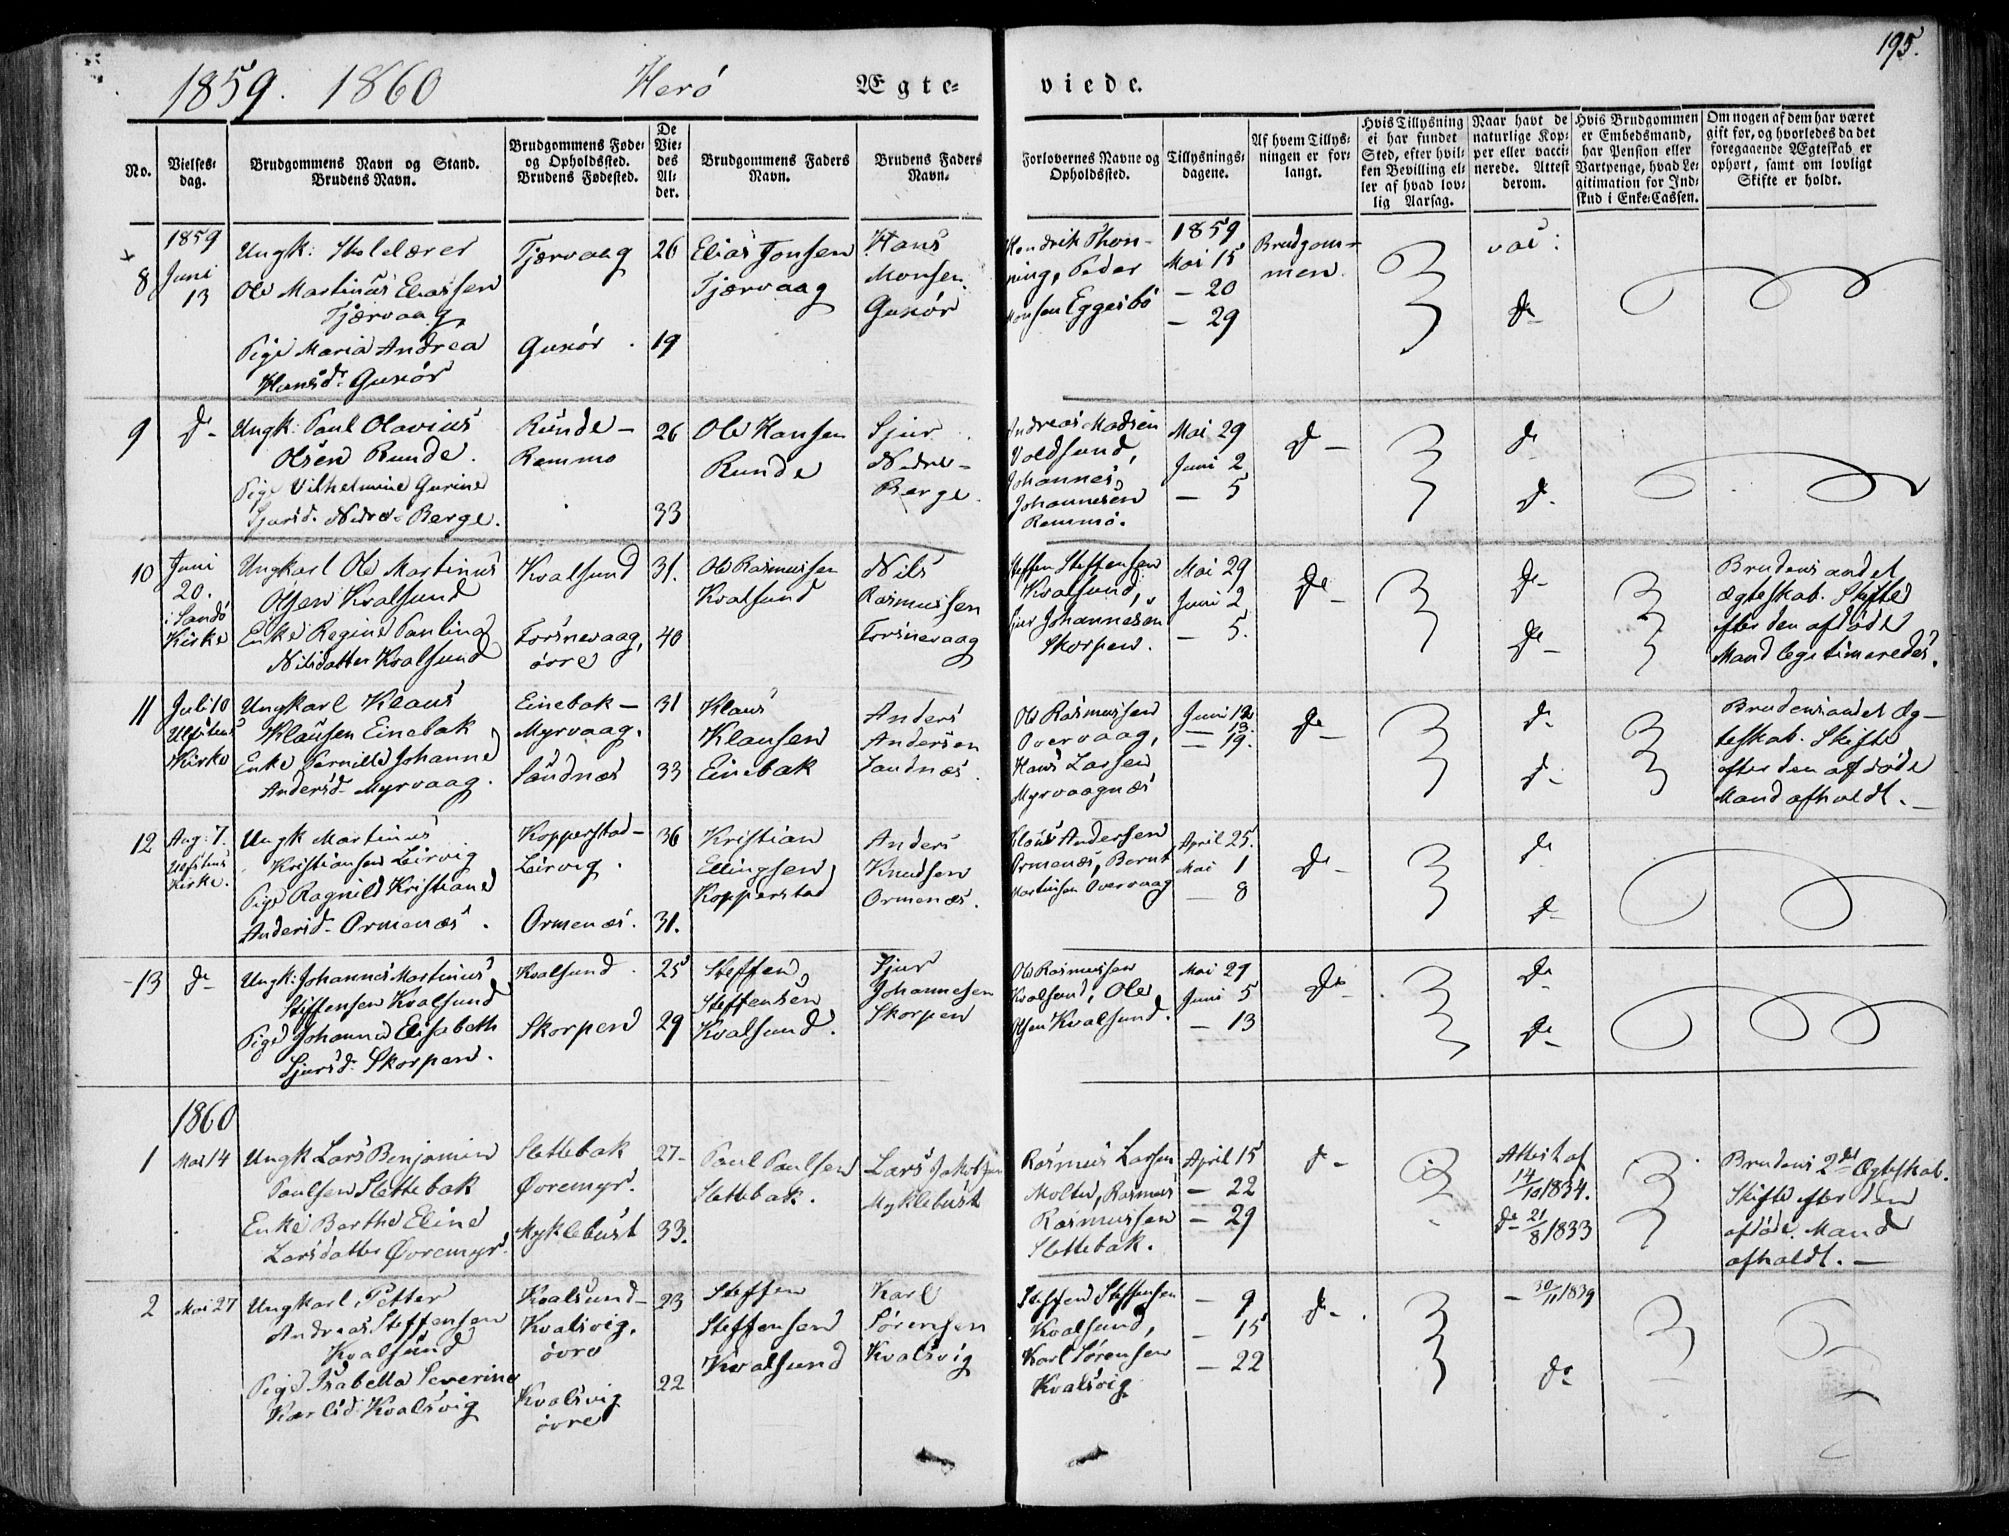 195.
1859. 1860 Herö Ægte- viede.
No.
Vielses-
dag.
Brudgommens Navn og Stand.
Brudens Navn.
Brudgommens Føde-
og Opholdssted.
Brudens Fødested.
De
Vie-
des
Al-
der.
Brudgommens Faders
Navn.
Brudens Faders
Navn.
Forlovernes Navne og
Opholdssted.
Tillysnings-
dagene.
Af hvem Tillys-
ningen er for-
langt.
Hvis Tillysning
ei har fundet
Sted, efter hvil-
ken Bevilling el-
ler af hvad lov-
lig Aarsag.
Naar havt de
naturlige Kop-
per eller vacci-
nerede. Attest
derom.
Hvis Brudgommen
er Embedsmand,
har Pension eller
Vartpenge, hvad Le-
gitimation for Ind-
skud i Enke-Cassen.
Om nogen af dem har været
gift før, og hvorledes da det
foregaaende Ægteskab er
ophørt, samt om lovligt
Skifte er holdt.
8
1859
Juni
13
Ungk: Skolelærer
Ole Martinus Eliassen
Tjærvaag
Pige Maria Andrea
Hansd. Gusiör
Tjærvaag
Gusiör.
26
19
Elias Jonsen
Tjærvaag
Hans
Monsen
Gusiör
Hendrik Thon-
ning, Peder
Monsen Eggesbö
1859
Mai 15
- 20
- 29
Brudgom-
men.
vac:
do
9
do
Ungk: Paul Olavius
Olsen Runde.
Pige Vilhelmine Gurine
Sjursd. Nedre-Berge.
Runde-
Remmö
26
33
Ole Hansen
Runde
Sjur
Nedre-
Berge.
Andreas Madsen
Voldsund,
Johannes
Johannesen
Remmö.
Mai 29
Juni 2
- 5
do
do
do
10
Juni
20.
i Sandö
Kirke
Ungkarl Ole Martinus
Olsen Kvalsund
Enke Regine Paulina
Nilsdatter Kvalsund
Kvalsund
Torsnevaag,
övre
31.
40
Ole Rasmussen
Kvalsund
Nils
Rasmussen
Torsnevaag
Steffen Steffensen
Kvalsund,
Sjur Johannesen
Skorpen.
Mai 29
Juni 2
- 5.
do
do
do
Brudens andet
Ægteskab. Skifte
efter den afdöde
Mand legitimeredes.
11
Juli 10
Ulfstens
Kirke
Ungkarl Klaus
Klausen Einebak
Enke Pernille Johanne
Andersd. Myrvaag.
Einebak-
Myrvaag.
Sandnæs
31
33
Klaus
Klausen
Einebak
Anders
Andersen
Sandnæs.
Ole Rasmussen
Overvaag,
Hans Larsen
Myrvaagnæs
Juni 12
- 13
- 19.
do
do
do
Brudens andet Æg-
teskab. Skifte
efter den afdöde
Mand afholdt.
12
Aug: 7.
Ulfstens
Kirke.
Ungk Martinus
Kristiansen Leirvig
Pige Ragnild Kristiane
Andersd. Ormenæs.
Kopperstad-
Leirvig.
Ormenæs.
36
31.
Kristian
Ellingsen
Kopperstad
Anders
Knudsen
Ormenæs.
Klaus Andersen
Ormenæs, Bernt
Martinsen Overvaag
April 25.
Mai 1
- 8
do
do
do
13
do
Ungk: Johannes Martinus
Steffensen Kvalsund
Pige Johanne Elisabeth
Sjursd. Skorpen.
Kvalsund.
Skorpen
25
29
Steffen
Steffensen
Kvalsund.
Sjur
Johannesen
Skorpen
Ole Rasmussen
Kvalsund, Ole
Olsen Kvalsund.
Mai 29
Juni 5
- 13
do
do
do
1860
1
Mai 14
Ungk Lars Benjamin
Paulsen Slettebak
Enke Berthe Eline
Larsdatter Øvremyr.
Slettebak
Øvremyr.
Myklebust
27-
33.
Paul Paulsen
Slettebak.
Lars Jakobsen
Myklebust
Rasmus Larsen
Moltu, Rasmus
Rasmussen
Slettebak.
April 15
- 22
- 29
do
Attest af
14/10 1834.
do 21/8 1833
Brudens 2det Ægteskab.
Skifte efter den
afdöde Mand
afholdt.
2
Mai 27
Ungkarl Petter
Andreas Steffensen
Kvalsund
Pige Isabella Severine
Karlsd. Kvalsvig
Kvalsund-
Kvalsvig,
övre
Kvalsvig
övre
23
22
Steffen
Steffensen
Kvalsund
Karl
Sörensen
Kvalsvig
Steffen Steffensen
Kvalsund,
Karl Sörensen
Kvalsvig
- 9
- 15
- 22
do
- 30/11 1839
do